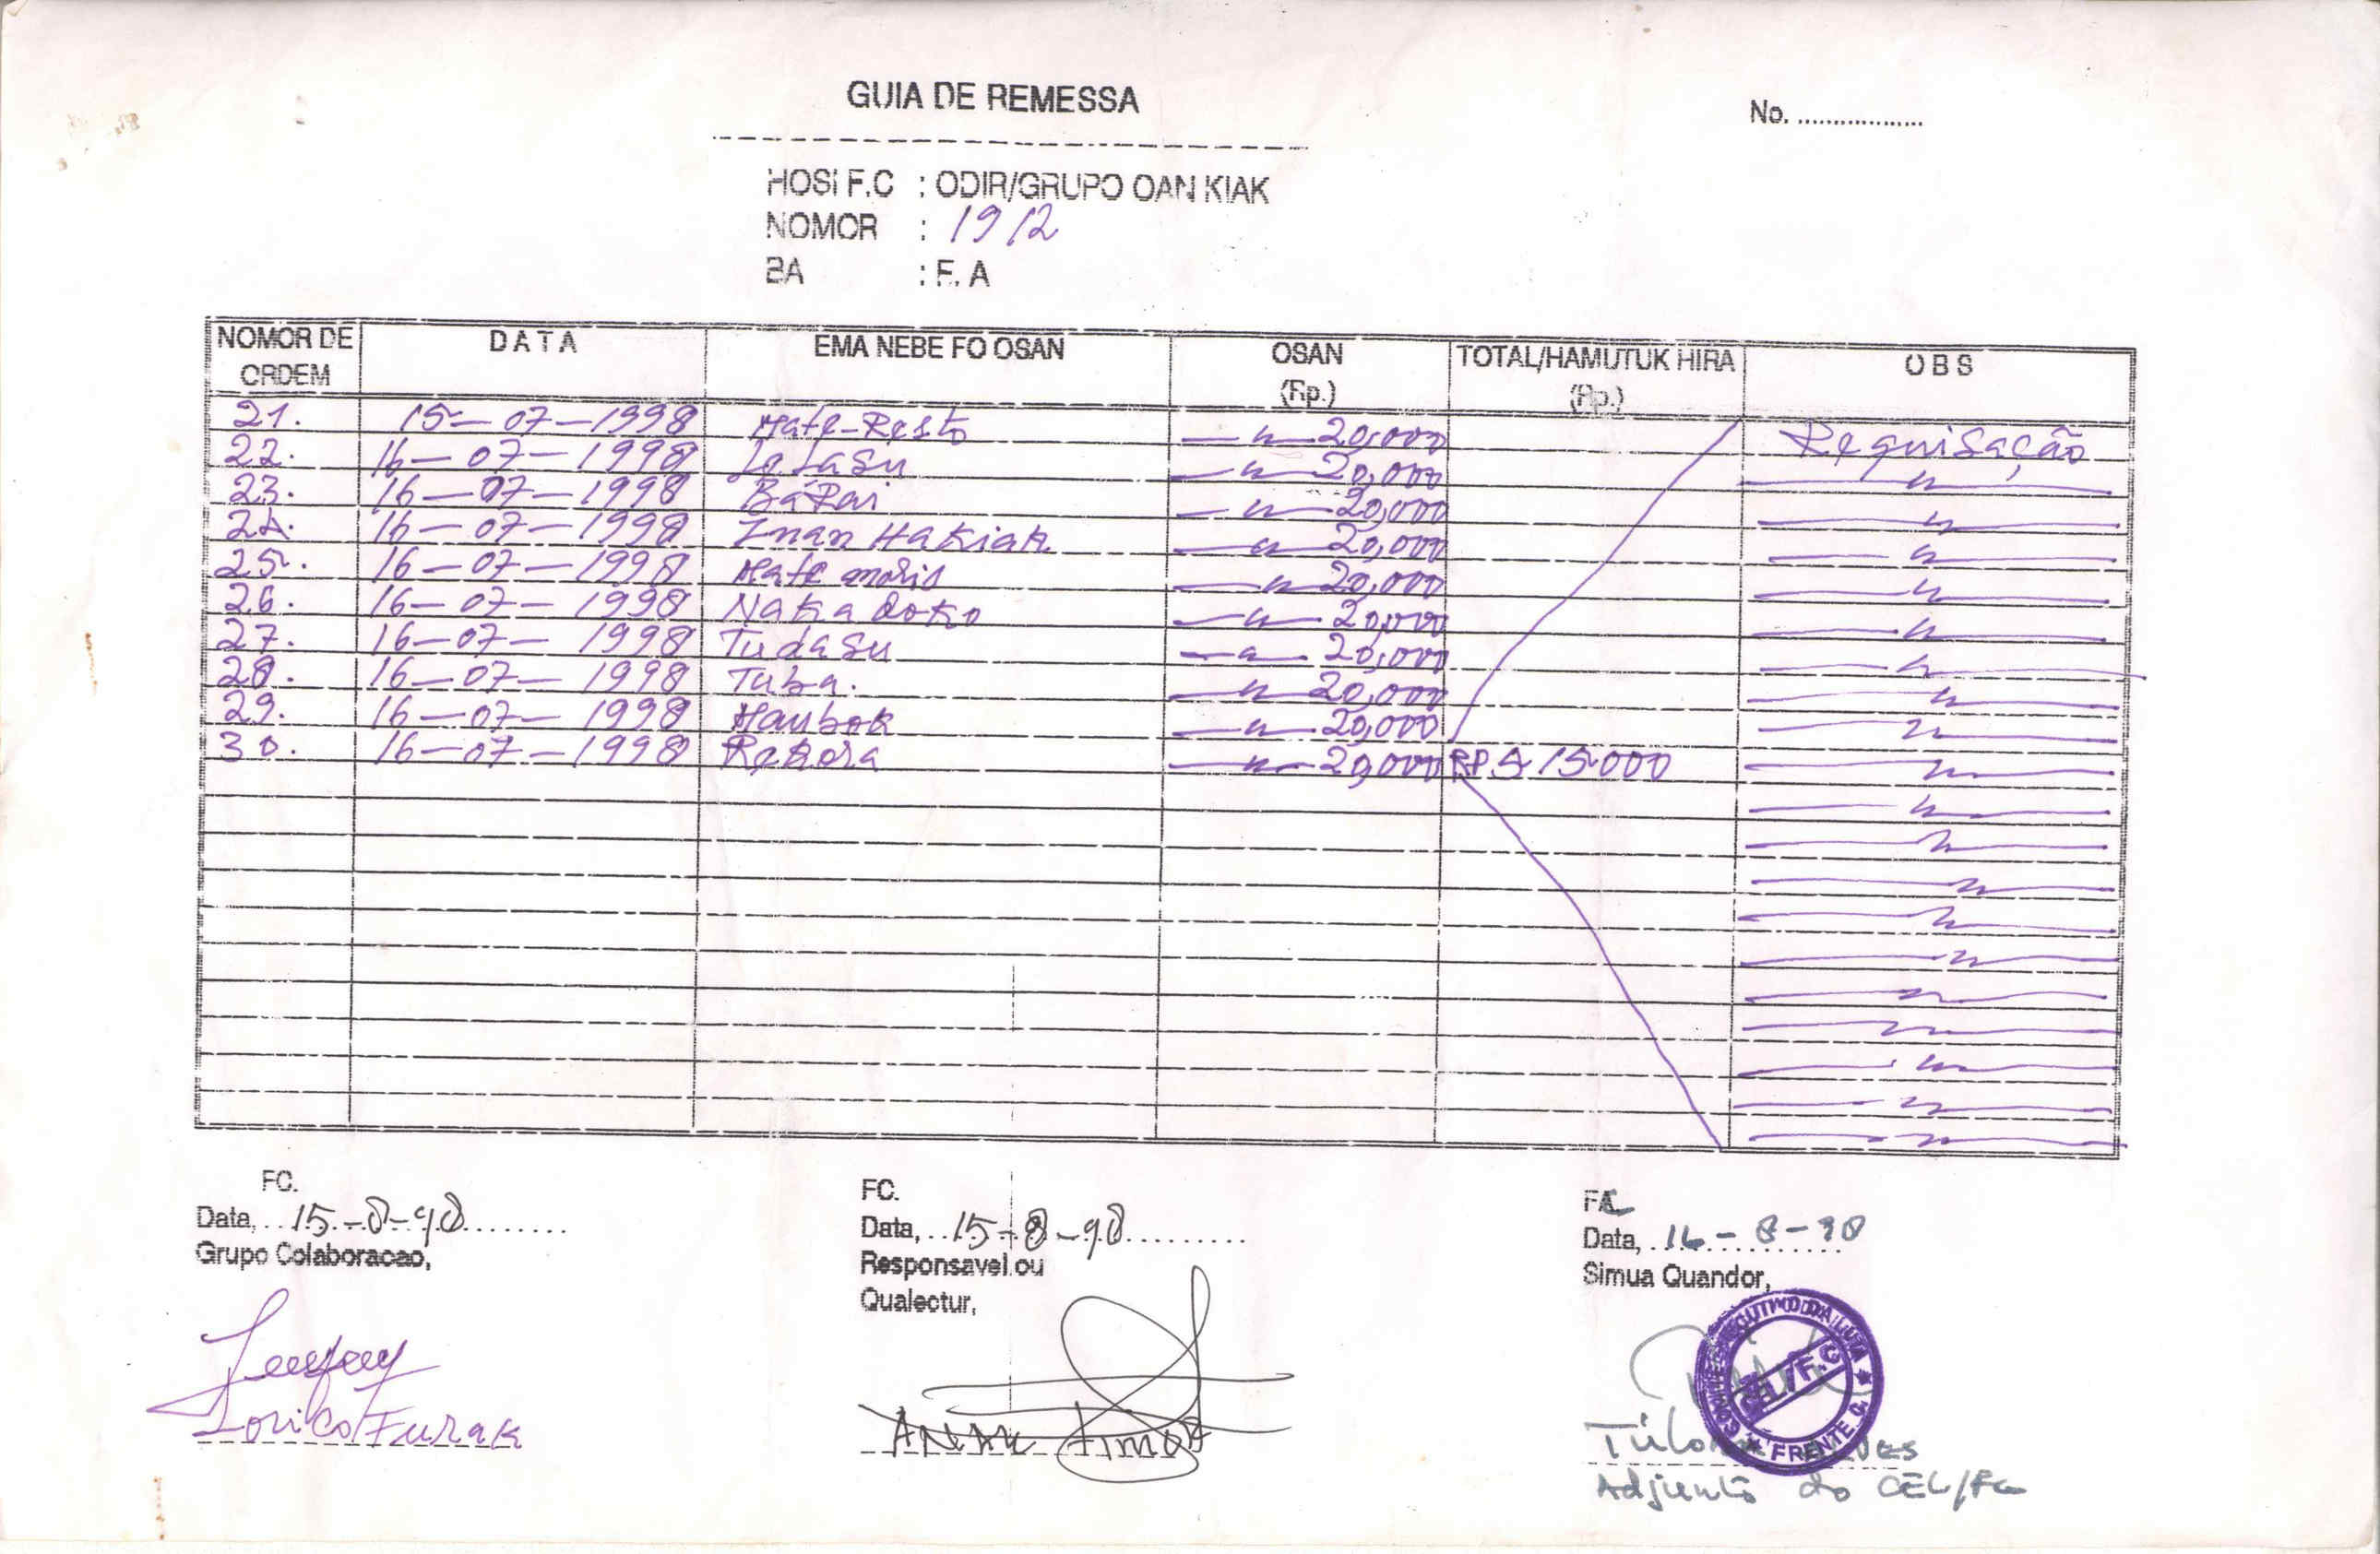 GUIA DE REMESSA
No. ..................
HOSI F.C : ODIR/GRUPO OAN KIAK
NOMOR : 1912
BA : F. A
NOMOR DE ORDEM DATA EMA NEBE FO OSAN OSAN (Rp.) TOTAL/HAMUTUK HIRA (Rp.) OBS
21. 15-07-1998 Mate-Resto 20,000 Requisação
22. 16-07-1998 20,000
23. 16-07-1998 BáRai 20,000
24. 16-07-1998 Inan Hakiak 20,000
25. 16-07-1998 Mate moris 20,000
26. 16-07-1998 Naka doko 20,000
27. 16-07-1998 Tudasu 20,000
28. 16-07-1998 Tuba. 20,000
29. 16-07-1998 Haubok 20,000
30. 16-07-1998 Rekora 20,000 RP. 515.000
FC.
Data, 15-8-98
Grupo Colaboracao,
Lorico Furak
FC.
Data, 15-8-98
Responsavel ou
Qualectur,
Data, 16-8-98
Simua Quandor,
CEL/F.C
FRENTE C.
Adjunto do CEL/FC